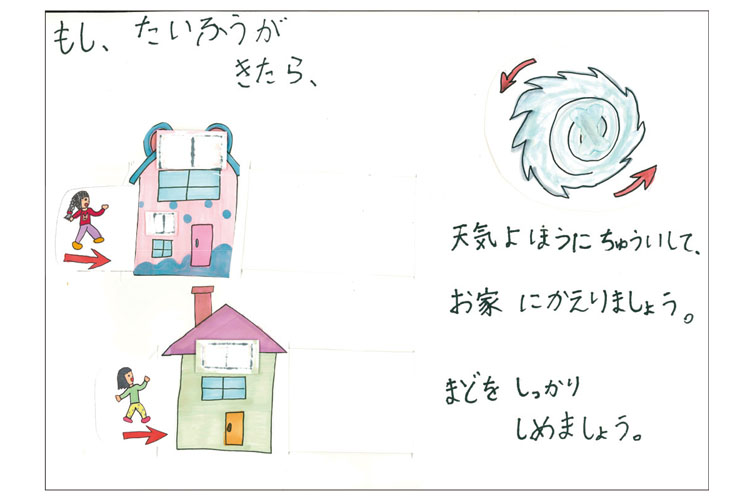 もし、たいふうが
きたら、
天気よほうにちゅういして、
お家にかえりましょう。
まどをしっかり
しめましょう。